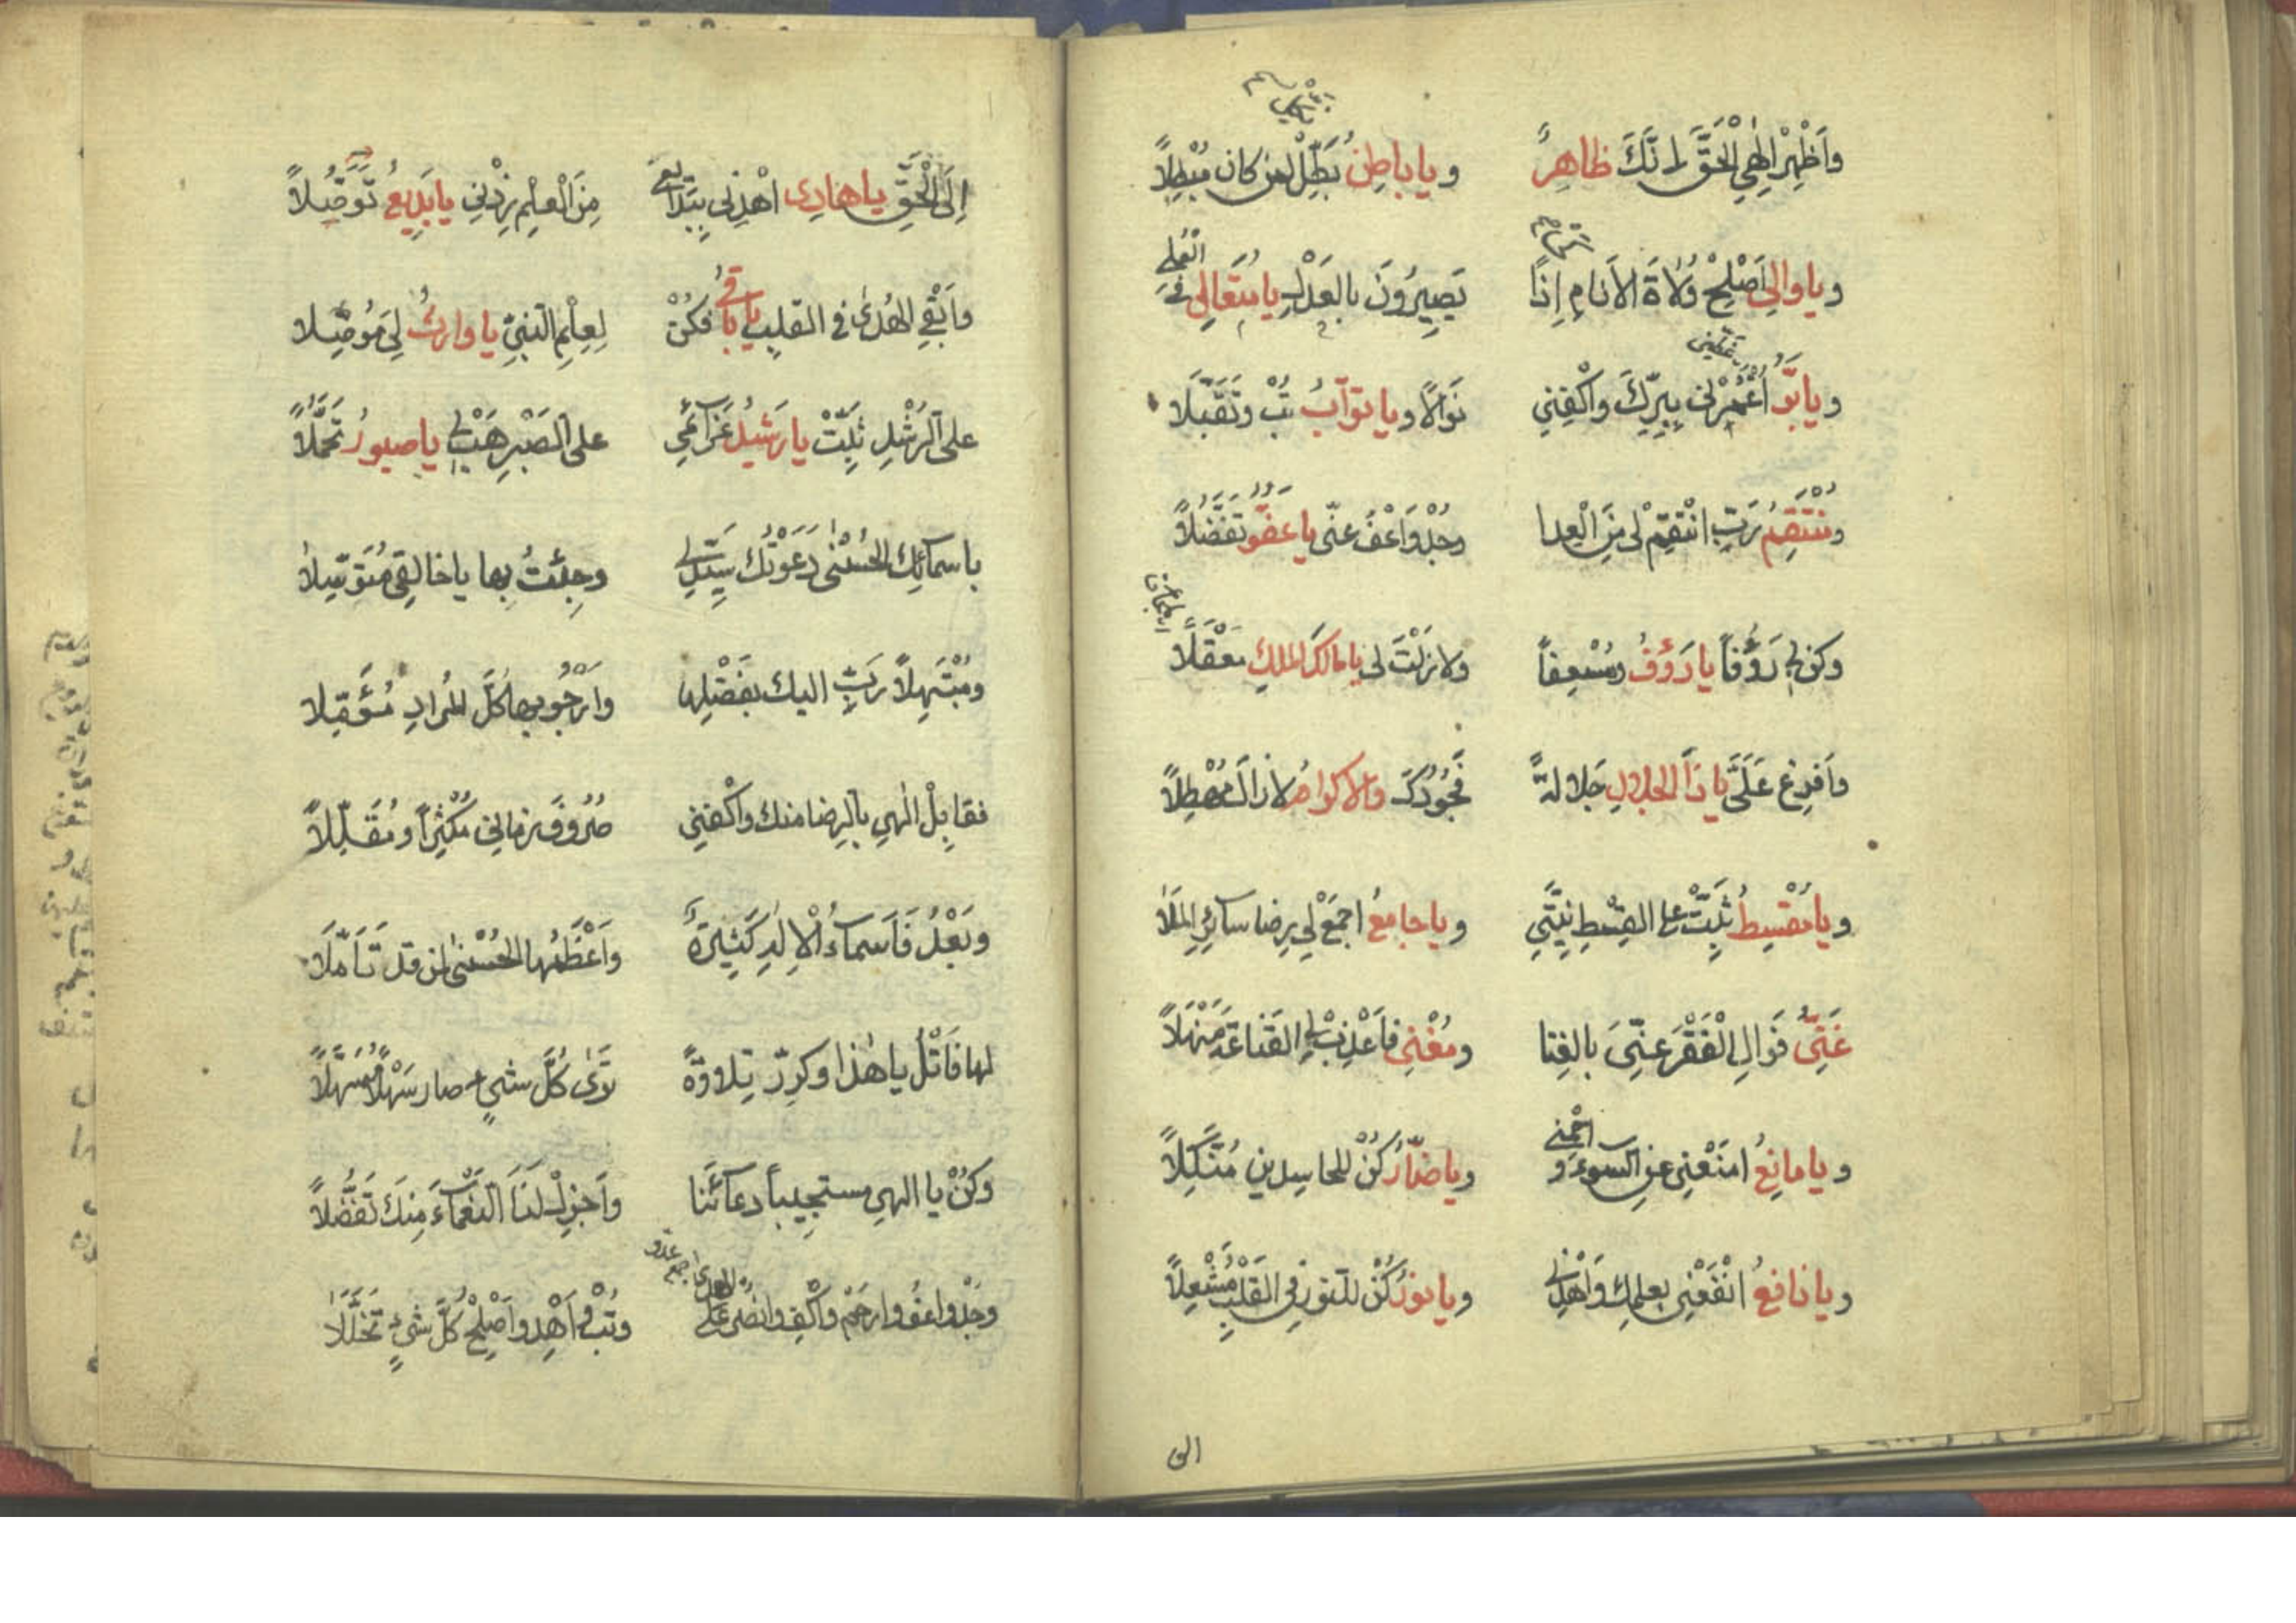 وَأَظْهِرْ إِلٰهِي الْحَقَّ إِنَّكَ ظَاهِرٌ وياباطِنٌ بَطِّلْ لمن كان مُبْطِلاً
وياوالِي اَصْلِحْ وُلَاةَ الأَنَامِ إِذًا يَصِيرُونَ بالعَدْلِ يا مُتَعَالِي في العُلَى
ويابَرُّ اغْمُرْنِى بِبِرِّكَ واكْفِنِي نَوَالًا ويا توّابُ تُبْ وتَقَبَّلَا
ومُنْتَقِمُ رَبِّ انْتَقِمْ لى مِنَ الْعِدا وجُدْ وَاعْفُ عنّى يا عَفُوُّ تَفَضُّلاً
وكن لى رَؤُفاً يا رَؤُفُ ومُسْعِفاً ولا زِلْتَ لى يا مالكَ الملكِ مَعْقَلاً
وأفرغ عَلَىَّ يا ذَا الجلالِ جَلالةً فَجُودُكَ والاكرامُ لا زالَ مُهْطِلاً
ويا مُقْسِطُ ثَبِّتْ على القِسْطِ نِيَّتِي وياجامعُ اجْمَعْ لي رِضا سائرِ المَلَا
غَنِيٌّ فَوَالِ الْفَقْرَ عنّىَ بالغِنا ومُغْنِى فأعْذِبْ لى القَناعَةَ مَنْهَلاً
ويا مانِعُ امنَعْنِى عن السوء و احْمِنِى وياضارُّ كُنْ للحاسدين مُنَكِّلاً
ويا نافِعُ انْفَعْنِى بعلمِك وَاهْدِنِى ويا نورُ كُنْ للنور في القَلْبِ مُشْعِلاً
الى
إِلَى الْحَقِّ يا هادِى اهْدِنِى يَا بَدَائِع مِنَ الْعِلْمِ زِدْنِي يا بَدِيعُ تَوَصُّلاً
وأَبْقِ الهُدٰى في القلبِ يا باقِي فكُنْ لِعِلْمِ النبيّ يا وارِثُ لِىَ مُوصِّلا
على الرُشْدِ ثَبِّتْ يا رَشِيدُ عَزَائمِي على الصَبْرِ هَبْ لى يا صبورُ تَحَمُّلاً
باسمائِك الحُسْنٰى دَعَوْتُك سَيِّدِى وجِئتُ بها يا خالِقِى مُتَوَسِّلا
ومُبْتَهِلاً رَبِّ اليك بفَضْلِها وأَرْجُو بها كُلَّ المُرادِ مُؤَمِّلا
فقابِلْ الٰهي بالرِضا منك واكْفِنِي صُرُوفَ زمانِى مُكْثِراً ومُقَلِّلاً
وبَعْدُ فَأَسماءُ الْإلٰهِ كَثِيرَةٌ وأَعْظَمُها الحُسْنٰى لمن قد تَأمَّلَا
لها فَاتْلُ يا هٰذا وكرِّر تِلاوةً تَرَى كُلَّ شيٍ صار سَهْلاً مُسَهَّلاً
وكُنْ يا الهي مستجِيباً دعآئَنا وأَجزِلْ لَنَا النَعْمَاءَ مِنكَ تَفَضُّلاً
وجُدْ واعفُ وارحَمْ واكْفِ وانصُر على العدى وتُبْ واَهْدِ واَصْلِحْ كُلَّ شيءٍ تَخَلَّلَا